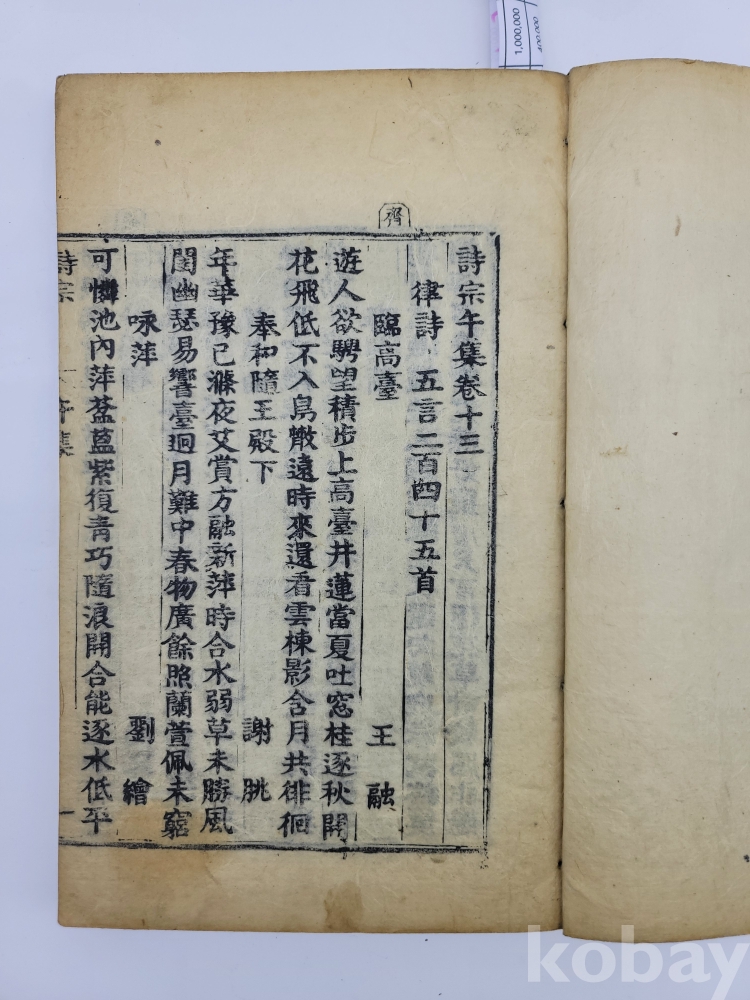 1,000,000
齊
詩宗午集卷十三
律詩 五言二百四十五首
臨高臺 王融
遊人欲騁望積步上高臺井蓮當夏吐窓桂逐秋開
花飛低不入鳥散遠時來還看雲棟影含月共徘徊
奉和隨王殿下 謝朓
年華豫已滌夜艾賞方融新萍時合水弱草未勝風
閨幽瑟易響臺迥月難中春物廣餘照蘭萱佩未窮
咏萍 劉繪
可憐池內萍葢蒀紫復青巧隨浪開合能逐水低平
詩宗 午集 一
kobay